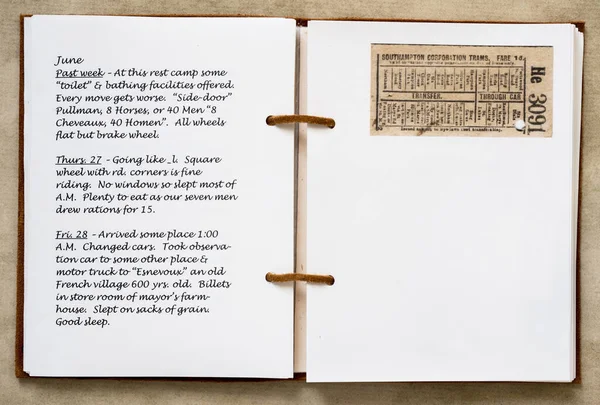 June
Past week - At this rest camp some
"toilet" & bathing facilities offered.
Every move gets worse. "Side-door"
Pullman, 8 Horses, or 40 Men "8
Cheveaux, 40 Homen". All wheels
flat but brake wheel.
Thurs. 27 - Going like _l. Square
wheel with rd. corners is fine
riding. No windows so slept most of
A.M. Plenty to eat as our seven men
drew rations for 15.
Fri. 28 - Arrived some place 1:00
A.M. Changed cars. Took observa-
tion car to some other place &
motor truck to "Esnevoux" an old
French village 600 yrs. old. Billets
in store room of mayor's farm-
house. Slept on sacks of grain.
Good sleep.
SOUTHAMPTON CORPORATION TRAMS. FARE 1d.
TRANSFER. THROUGH CAR
He 3091